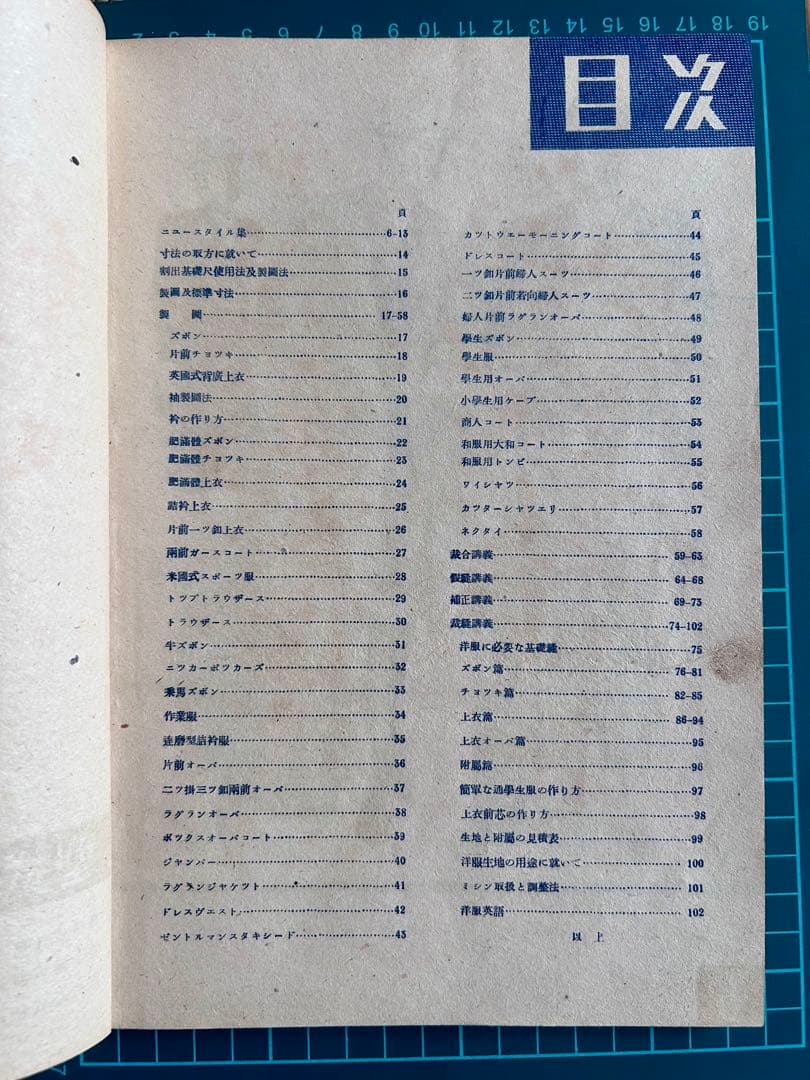 目次
頁
ニュースタイル集 6-13
寸法の取方に就いて 14
割出基礎尺使用法及製圖法 15
製圖及標準寸法 16
製圖 17-58
ズボン 17
片前チョツキ 18
英國式背廣上衣 19
袖製圖法 20
衿の作り方 21
肥滿體ズボン 22
肥滿體チョツキ 23
肥滿體上衣 24
詰衿上衣 25
片前一ツ釦上衣 26
兩前ガースコート 27
米國式スポーツ服 28
トツプトラウザース 29
トラウザース 30
半ズボン 31
ニツカーボツカーズ 32
乘馬ズボン 33
作業服 34
達磨型詰衿服 35
片前オーバ 36
二ツ掛三ツ釦兩前オーバ 37
ラグランオーバ 38
ボツクスオーバコート 39
ジャンパー 40
ラグランジャケツト 41
ドレスヴエスト 42
ゼントルマンスタキシード 43
頁
カツトウエーモーニングコート 44
ドレスコート 45
一ツ釦片前婦人スーツ 46
二ツ釦片前若向婦人スーツ 47
婦人片前ラグランオーバ 48
學生ズボン 49
學生服 50
學生用オーバ 51
小學生用ケープ 52
商人コート 53
和服用大和コート 54
和服用トンビ 55
ワイシャツ 56
カツターシャツエリ 57
ネクタイ 58
裁合講義 59-63
假縫講義 64-68
補正講義 69-73
裁縫講義 74-102
洋服に必要な基礎縫 75
ズボン篇 76-81
チョツキ篇 82-85
上衣篇 86-94
上衣オーバ篇 95
附屬篇 96
簡單な通學生服の作り方 97
上衣前芯の作り方 98
生地と附屬の見積表 99
洋服生地の用途に就いて 100
ミシン取扱と調整法 101
洋服英語 102
以上
19 18 17 16 15 14 13 12 11 10 9 8 7 6 5 4 3 2